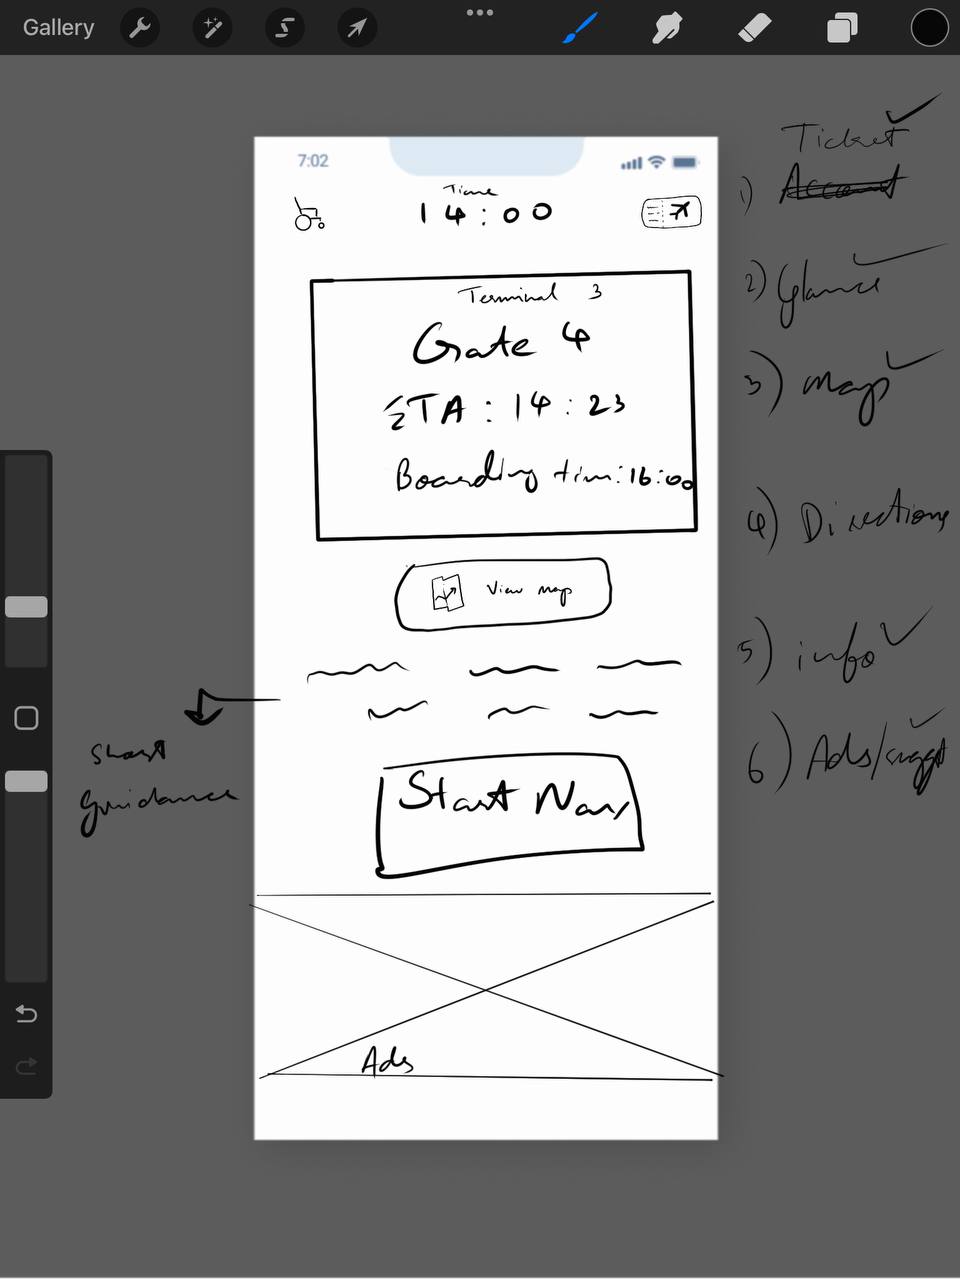 Gallery
7:02
Time
14:00
Terminal 3
Gate 4
ETA: 14:23
Boarding time: 16:00
View map
Start Nav
Ads
guidance
Ticket
1) Account
2) Glance
3) Map
4) Directions
5) info
6) Ads/